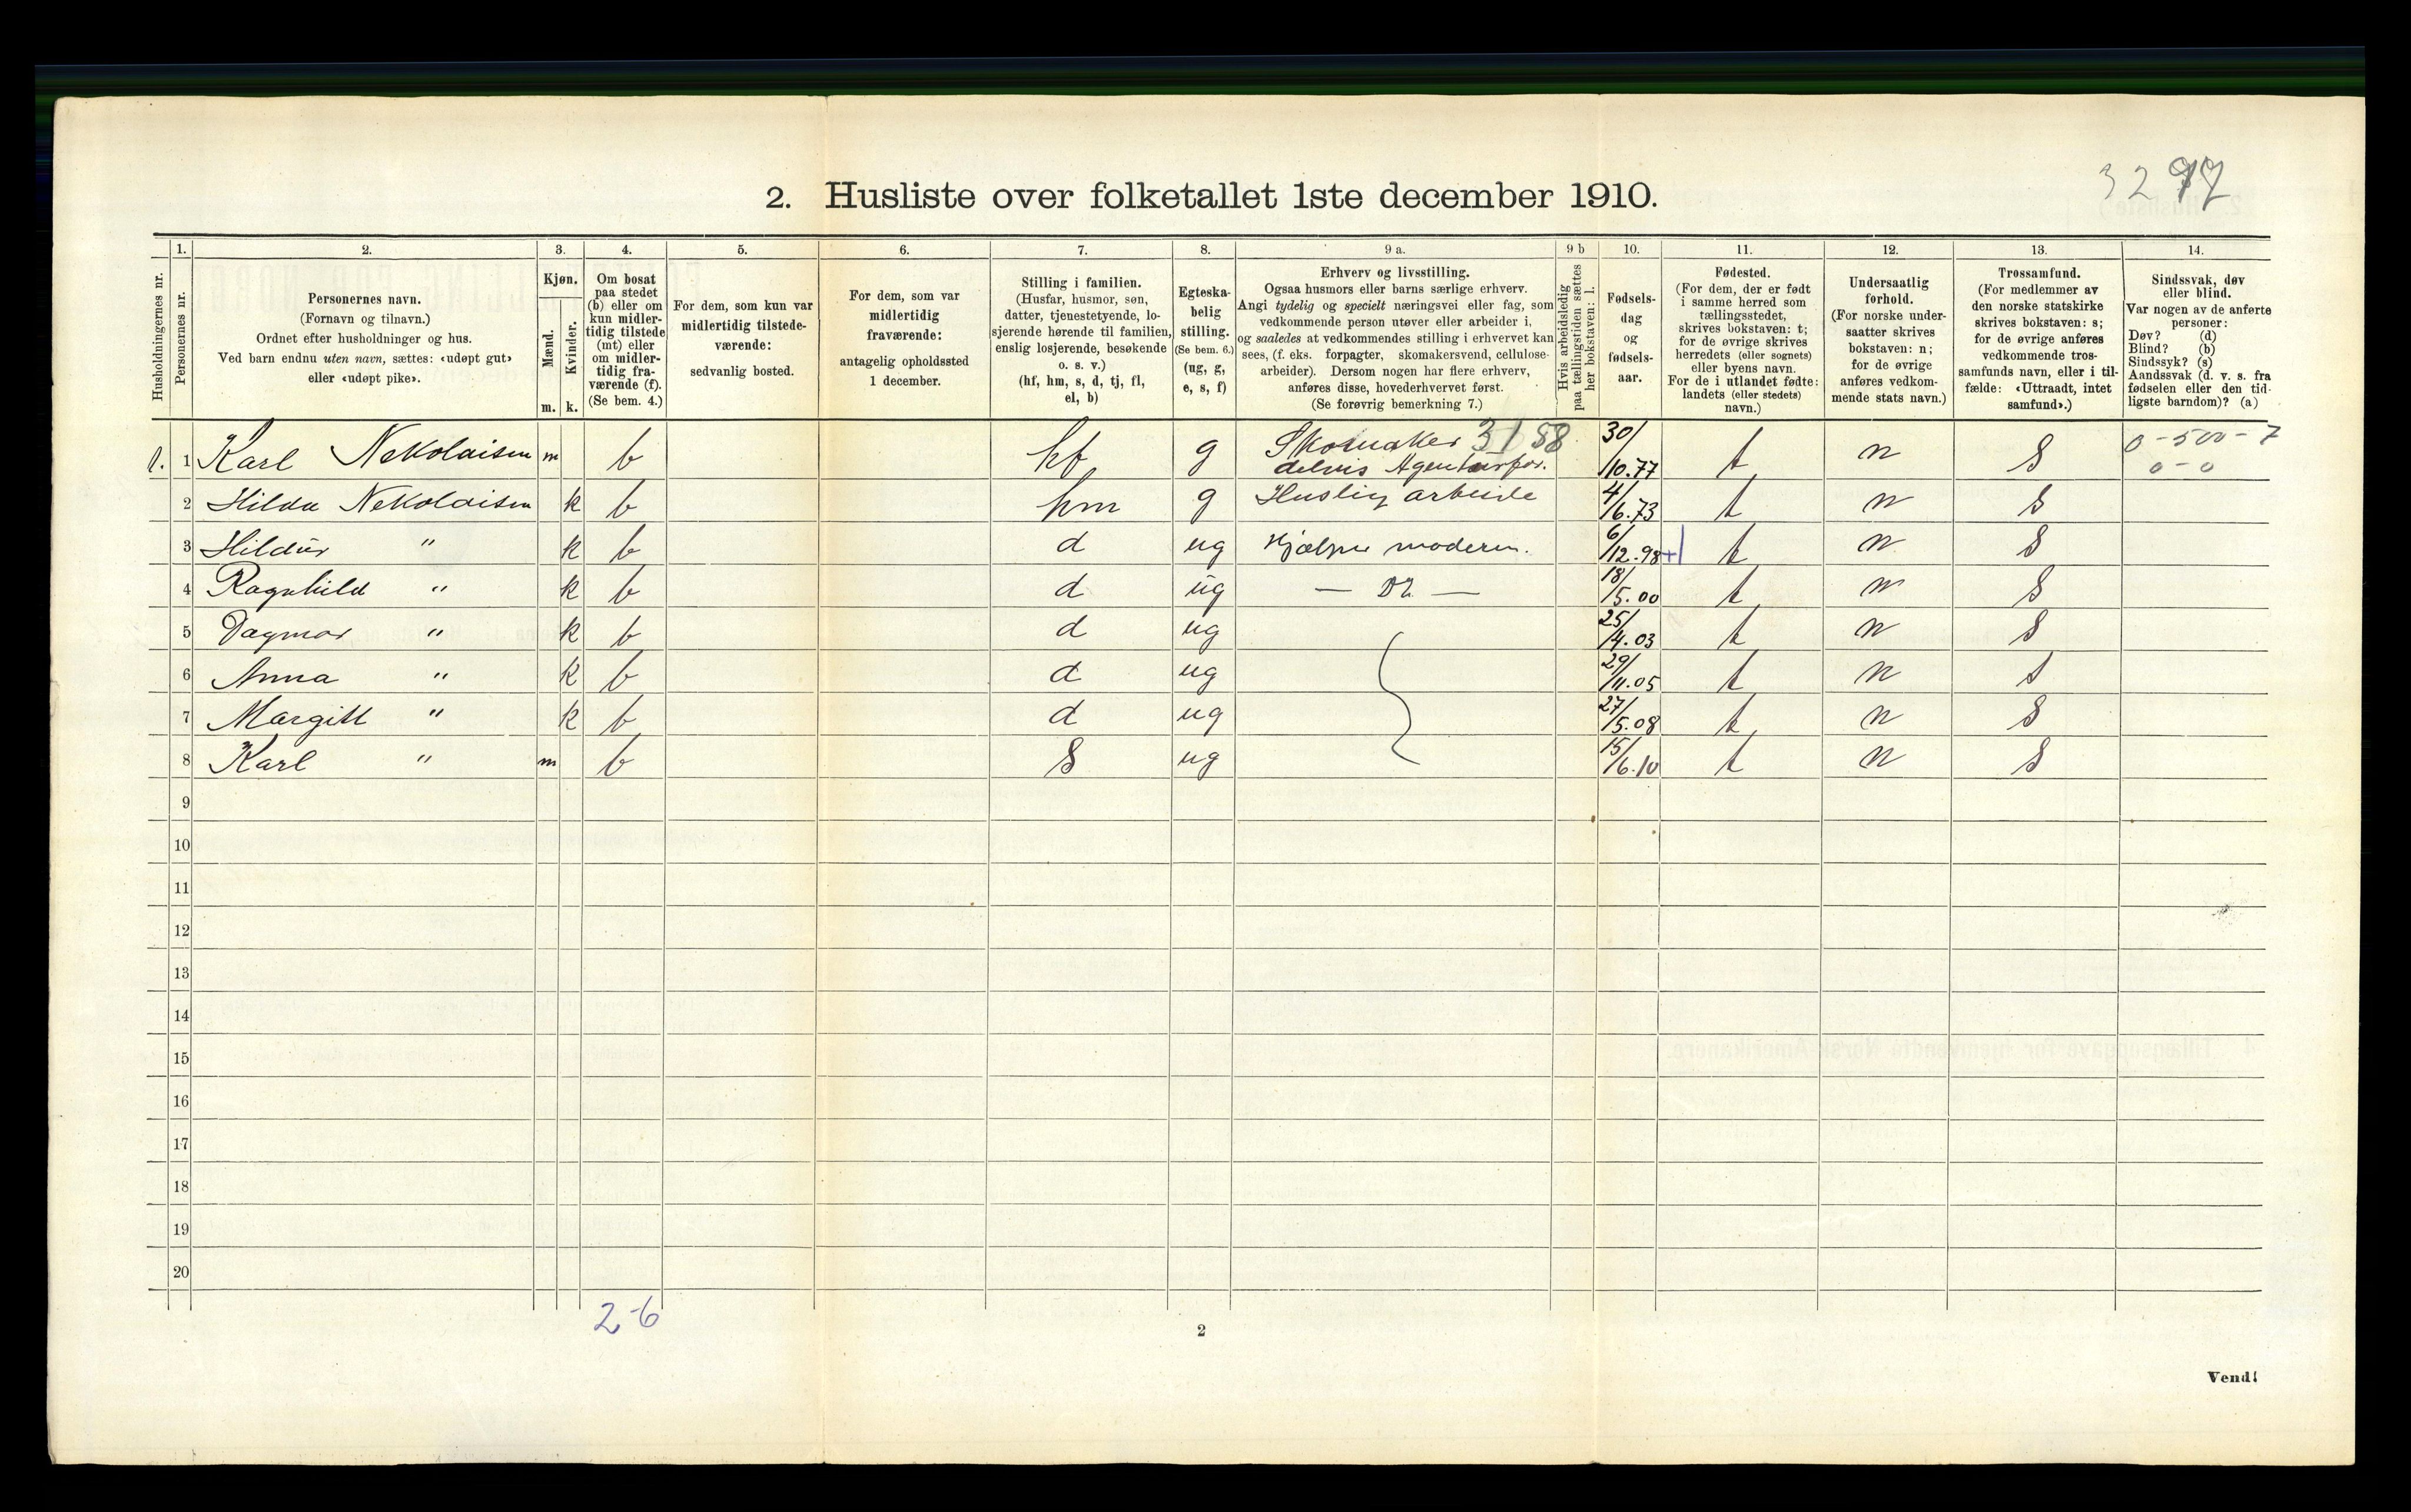 3297
2. Husliste over folketallet 1ste december 1910.
Husholdningernes nr.
1. Personernes nr.
2. Personernes navn.
(Fornavn og tilnavn.)
Ordnet efter husholdninger og hus.
Ved barn endnu uten navn, sættes: «udøpt gut»
eller «udøpt pike».
3. Kjøn.
Mænd. m.
Kvinder. k.
4. Om bosat
paa stedet
(b) eller om
kun midler-
tidig tilstede
(mt) eller
om midler-
tidig fra-
værende (f).
(Se bem. 4.)
5. For dem, som kun var
midlertidig tilstede-
værende:
sedvanlig bosted.
6. For dem, som var
midlertidig
fraværende:
antagelig opholdssted
1 december.
7. Stilling i familien.
(Husfar, husmor, søn,
datter, tjenestetyende, lo-
sjerende hørende til familien,
enslig losjerende, besøkende
o. s. v.)
(hf, hm, s, d, tj, fl,
el, b)
8. Egteska-
belig
stilling.
(Se bem. 6.)
(ug, g,
e, s, f)
9 a. Erhverv og livsstilling.
Ogsaa husmors eller barns særlige erhverv.
Angi tydelig og specielt næringsvei eller fag, som
vedkommende person utøver eller arbeider i,
og saaledes at vedkommendes stilling i erhvervet kan
sees, (f. eks. forpagter, skomakersvend, cellulose-
arbeider). Dersom nogen har flere erhverv,
anføres disse, hovederhvervet først.
(Se forøvrig bemerkning 7.)
9 b Hvis arbeidsledig
paa tællingstiden sættes
her bokstaven: l.
10. Fødsels-
dag
og
fødsels-
aar.
11. Fødested.
(For dem, der er født
i samme herred som
tællingsstedet,
skrives bokstaven: t;
for de øvrige skrives
herredets (eller sognets)
eller byens navn.
For de i utlandet fødte:
landets (eller stedets)
navn.)
12. Undersaatlig
forhold.
(For norske under-
saatter skrives
bokstaven: n;
for de øvrige
anføres vedkom-
mende stats navn.)
13. Trossamfund.
(For medlemmer av
den norske statskirke
skrives bokstaven: s;
for de øvrige anføres
vedkommende tros-
samfunds navn, eller i til-
fælde: «Uttraadt, intet
samfund».)
14. Sindssvak, døv
eller blind.
Var nogen av de anførte
personer:
Døv? (d)
Blind? (b)
Sindssyk? (s)
Aandssvak (d. v. s. fra
fødselen eller den tid-
ligste barndom)? (a)
1. 1 Karl Nekolaisen m b hf g Skomaker 3158 delvis Agenturfor. 30/10.77 t n S 0-500-7
0-0
2 Hilda Nekolaisen k b hm g Huslig arbeide 4/6.73 t n S
3 Hildur " k b d ug Hjælper moderen. 6/12.98 +1 t n S
4 Ragnhild " k b d ug — Do — 18/5.00 t n S
5 Dagmar " k b d ug 25/4.03 t n S
6 Anna " k b d ug 29/11.05 t n s
7 Margitt " k b d ug 27/5.08 t n S
8 Karl " m b S ug 15/6.10 t n S
9
10
11
12
13
14
15
16
17
18
19
20
2-6
2
Vend!